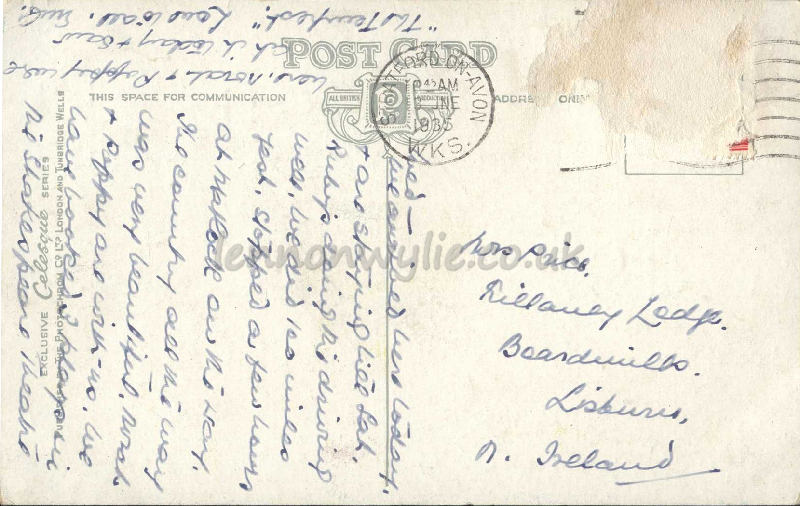 POST CARD
THIS SPACE FOR COMMUNICATION
ADDRESS ONLY
ALL BRITISH
STRATFORD-ON-AVON
AM
JNE
1935
WKS.
EXCLUSIVE Celesque SERIES
PUBLISHED BY THE PHOTOCHROM CO. LTD. LONDON AND TUNBRIDGE WELLS
Wed—
We arrived here today,
& are staying till Sat.
Ruby is doing the driving
well, we did 120 miles
yest, stopped a few hours
at on the way.
The country all the way
was very beautiful. Norah
& Poppy are with us. We
have booked places in
the Shakespeare Theatre
Norah & Poppy were
in it today & saw
"The Tempest". Love to all.
Mrs Price.
Killaney Lodge.
Boardmills.
Lisburn,
N. Ireland
lennonwylie.co.uk